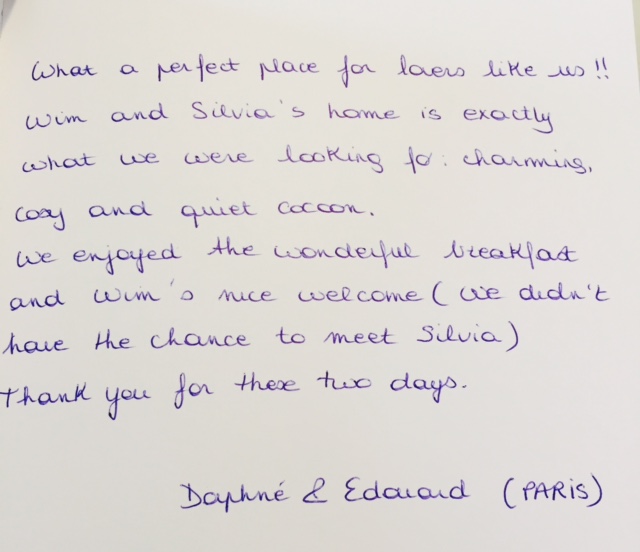 What a perfect place for lovers like us !!
Wim and Silvia's home is exactly
what we were looking for : charming,
cosy and quiet cocoon.
We enjoyed the wonderful breakfast
and Wim's nice welcome ( we didn't
have the chance to meet Silvia )
Thank you for these two days.
Daphné & Edouard (PARIS)